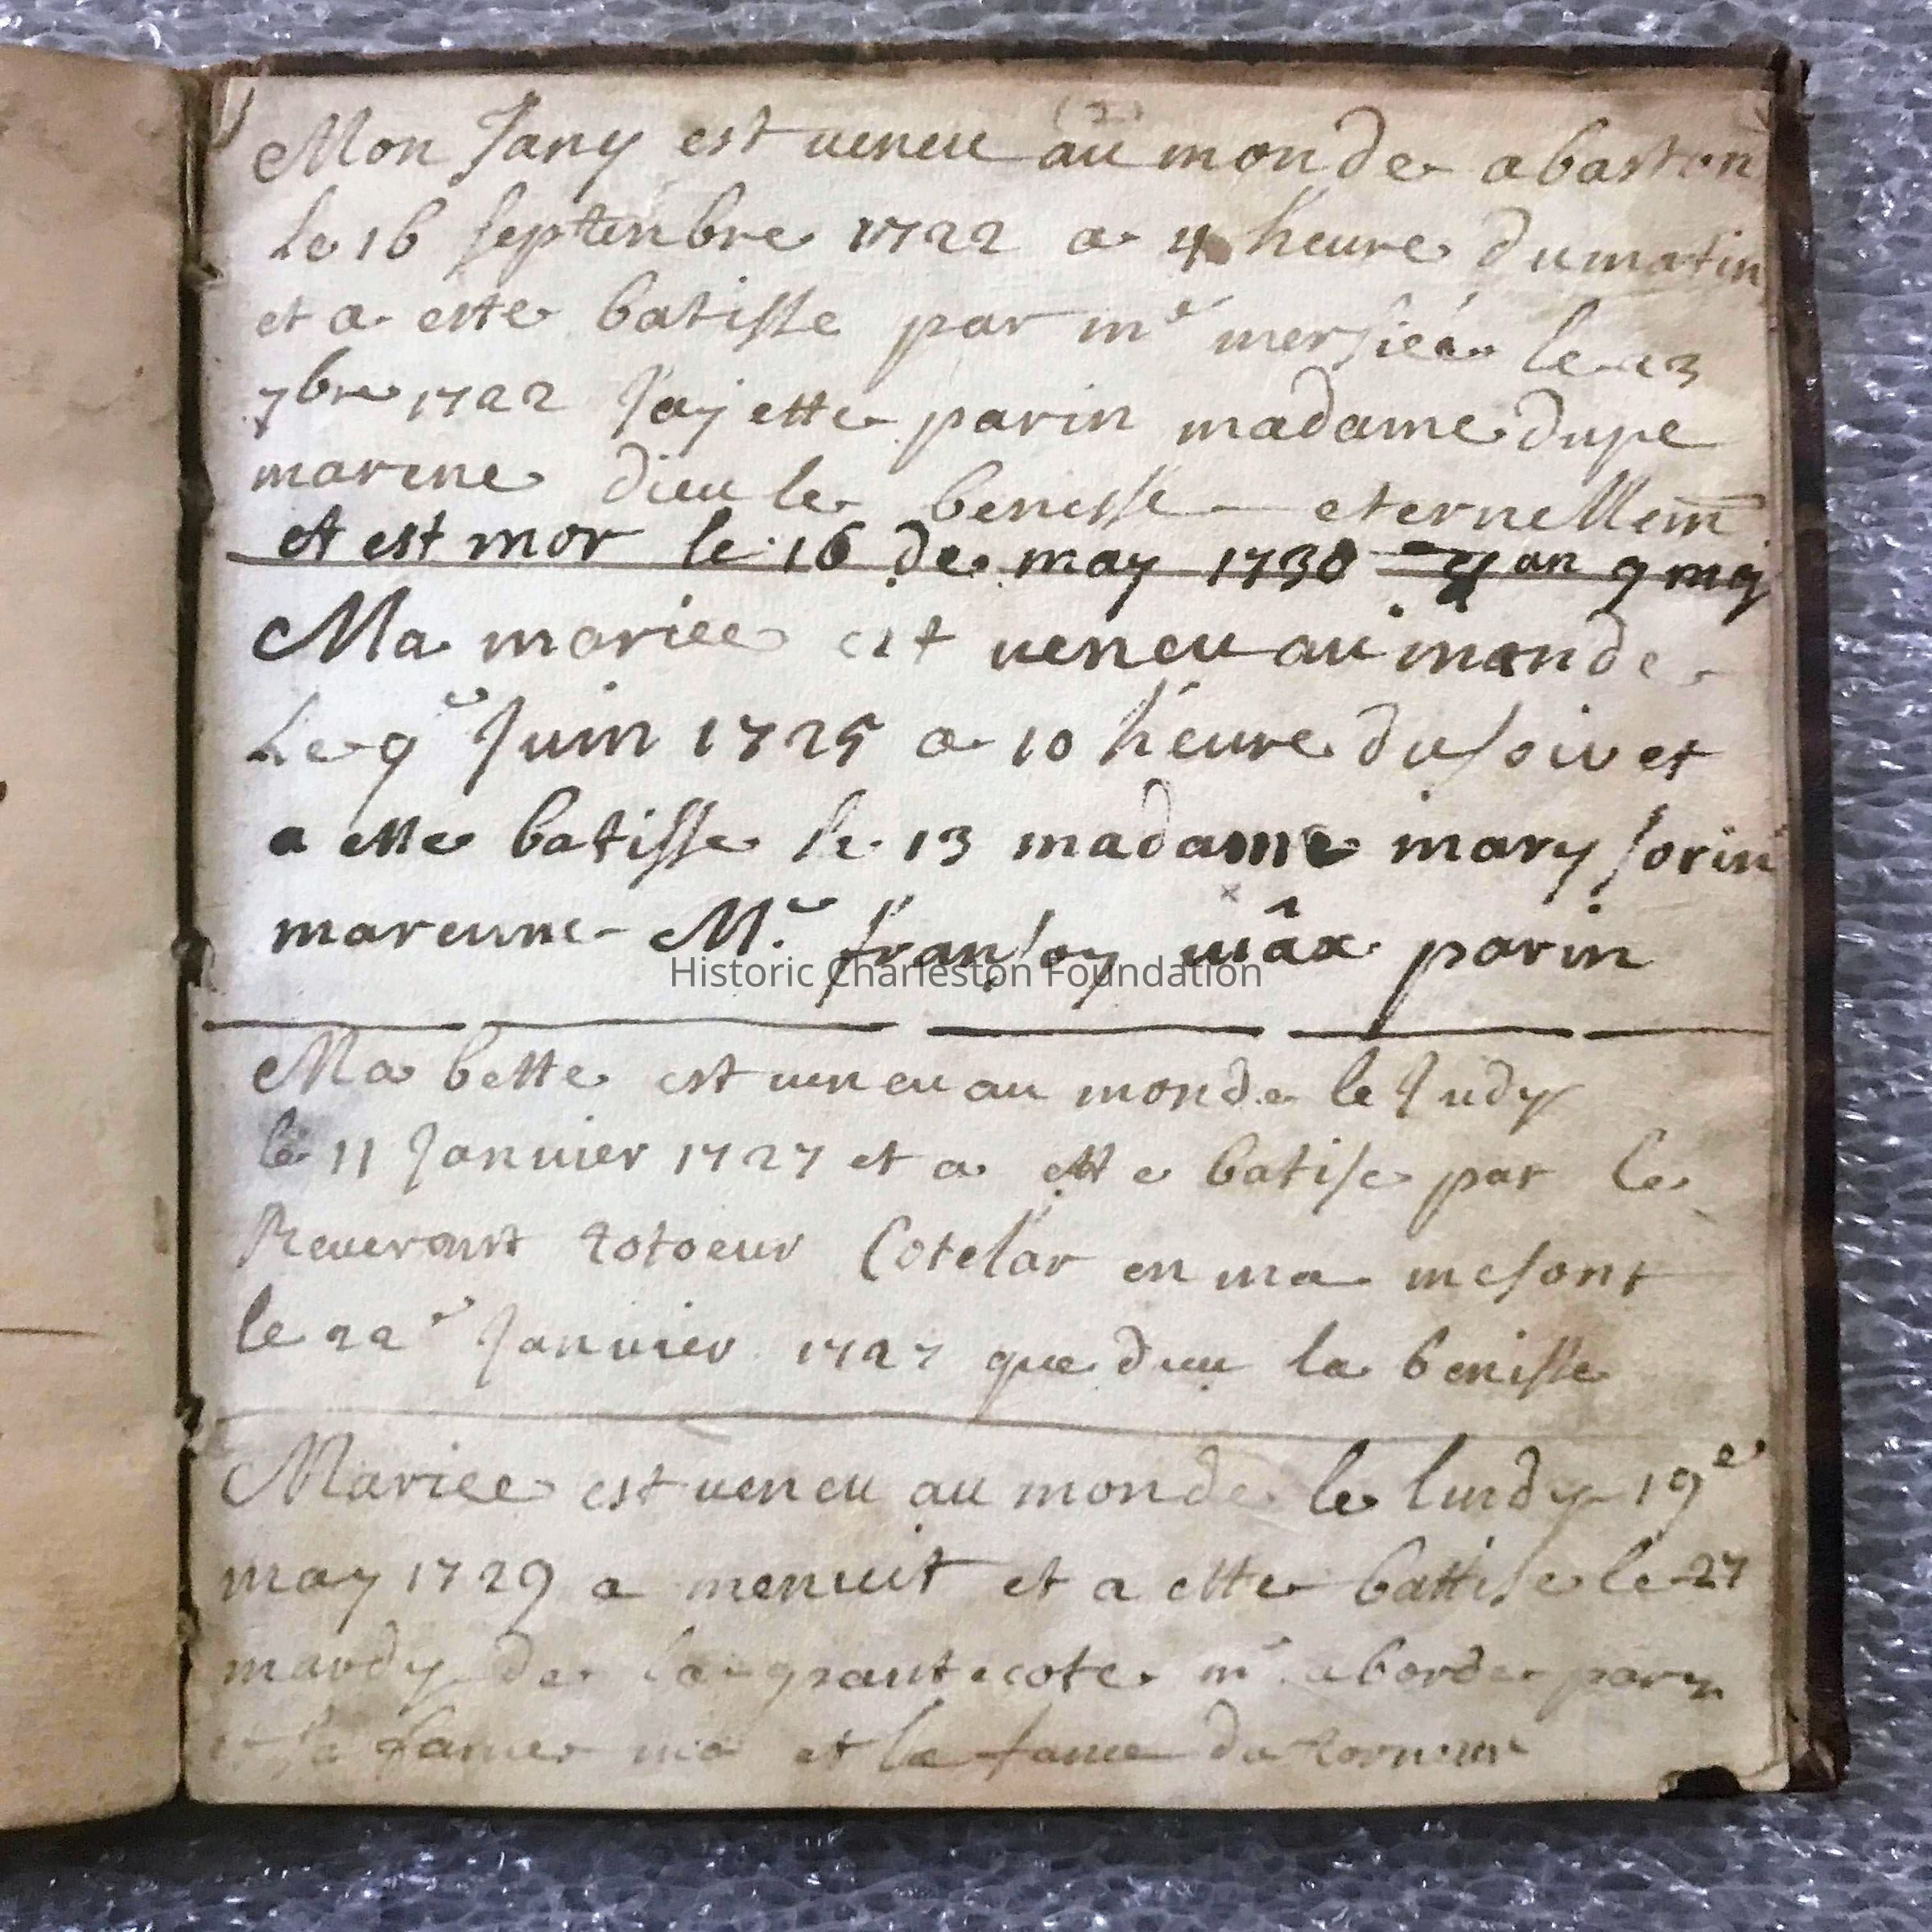 (2)
Mon Jany est veneu au monde a baston
Le 16 septenbre 1722 a 4 heure du matin
et a este batisse par mr mersiée le 23
7bre 1722 J'ay ette parin madame dupe
marene dieu le benesse eternellem
et est mor le 16 de may 1730 an 9 moy
Ma mariee est veneu au monde
Le 9e Juin 1725 a 10 heure du soir et
a ette batisse le 13 madame mary sorin
mareune Mr fransoy parin
Historic Charleston Foundation
Ma bette est veneu au monde le Judy
le 11 Janvier 1727 et a ette batise par le
Reverant Cotelar en ma mesont
le 22e Janvier 1727 que dieu la benisse
Mariee est veneu au monde le lundy 19e
may 1729 a menuit et a ette battise le 27
mardy de la pantecote mr aborde parin
et la fame du